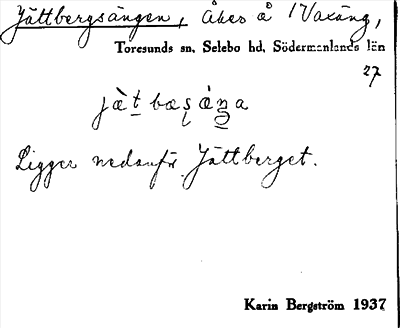 Jättbergsängen, åker å Vaxäng,
Toresunds sn, Selebo hd, Södermanlands län
27
Ligger nedanför Jättberget.
Karin Bergström 1937